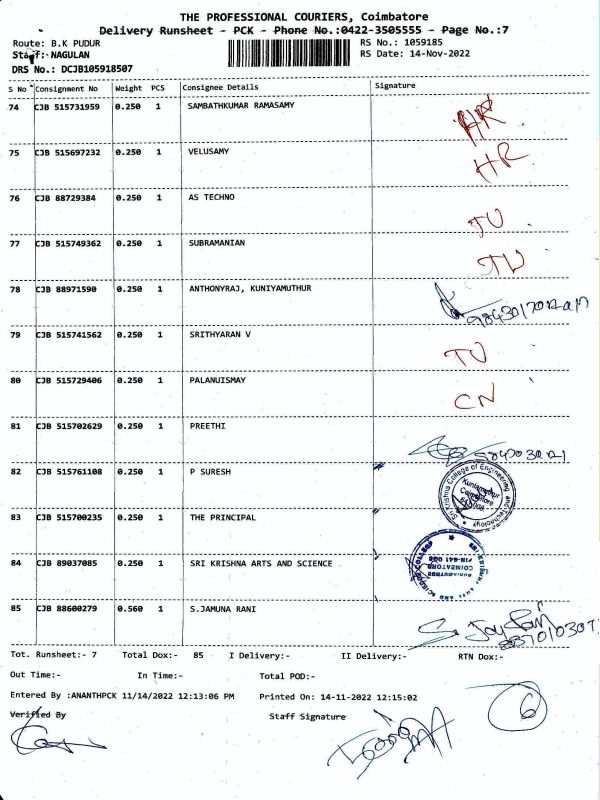 THE PROFESSIONAL COURIERS, Coimbatore
Delivery Runsheet - PCK - Phone No.:0422-3505555 - Page No.:7
Route: B.K PUDUR RS No.: 1059185
Staff:- NAGULAN RS Date: 14-Nov-2022
DRS No.: DCJB105918507
S No Consignment No Weight PCS Consignee Details Signature
74 CJB 515731959 0.250 1 SAMBATHKUMAR RAMASAMY HR
75 CJB 515697232 0.250 1 VELUSAMY HR
76 CJB 88729384 0.250 1 AS TECHNO TU
77 CJB 515749362 0.250 1 SUBRAMANIAN TU
78 CJB 88971590 0.250 1 ANTHONYRAJ, KUNIYAMUTHUR
79 CJB 515741562 0.250 1 SRITHYARAN V TU
80 CJB 515729406 0.250 1 PALANUISMAY CN
81 CJB 515702629 0.250 1 PREETHI
82 CJB 515761108 0.250 1 P SURESH
Sri Krishna College of Engineering and Technology
Kuniamuthur
Coimbatore
641008
83 CJB 515700235 0.250 1 THE PRINCIPAL
84 CJB 89037085 0.250 1 SRI KRISHNA ARTS AND SCIENCE
SRI KRISHNA ARTS AND SCIENCE COLLEGE
KUNIAMUTHUR
COIMBATORE
PIN-641 008
85 CJB 88600279 0.560 1 S.JAMUNA RANI
Tot. Runsheet:- 7 Total Dox:- 85 I Delivery:- II Delivery:- RTN Dox:-
Out Time:- In Time:- Total POD:-
Entered By :ANANTHPCK 11/14/2022 12:13:06 PM Printed On: 14-11-2022 12:15:02
Verified By Staff Signature
6